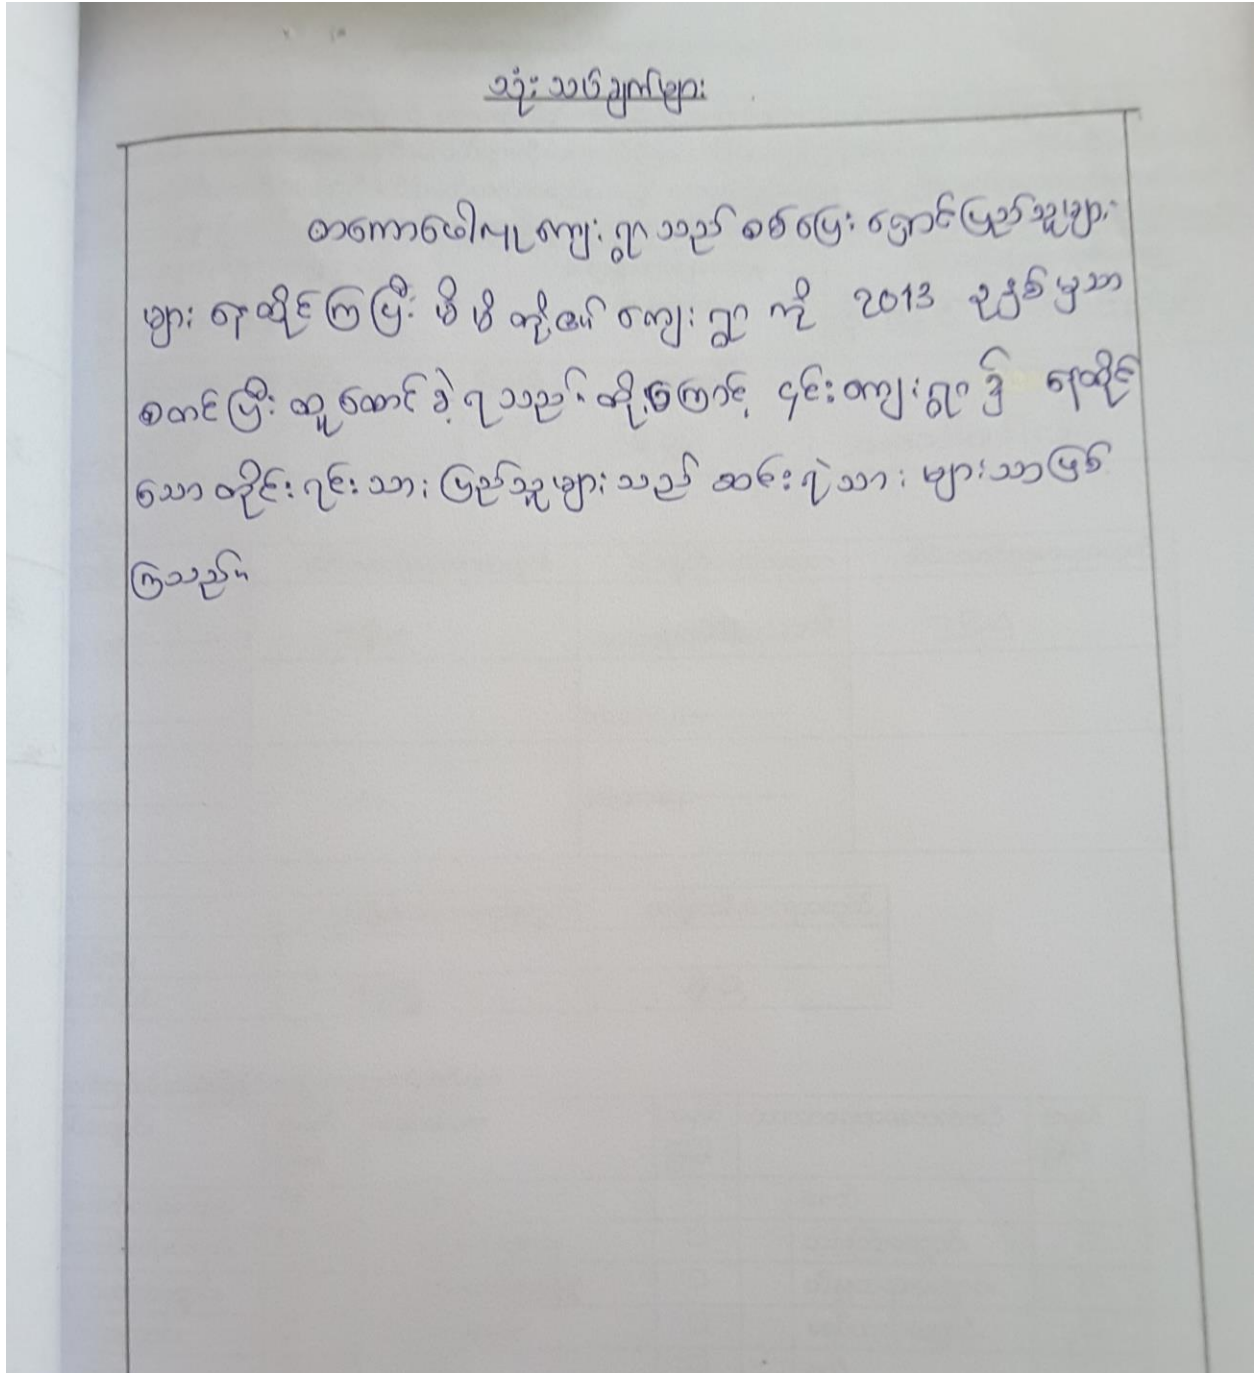 သုံးသပ်ချက်များ
တကောပေါလုကျေးရွာသည် စစ်ပြေး ရှောင်ပြည်သူများ
များ နေထိုင်ကြပြီး မိမိတို့၏ ကျေးရွာ ကို 2013 ခုနှစ်မှသာ
စတင်ပြီး ထူထောင်ခဲ့ရသည်။ ထို့ကြောင့် ၎င်းကျေးရွာ ၌ နေထိုင်
သော တိုင်းရင်းသား ပြည်သူများ သည် ဆင်းရဲသား များသာဖြစ်
ကြသည်။